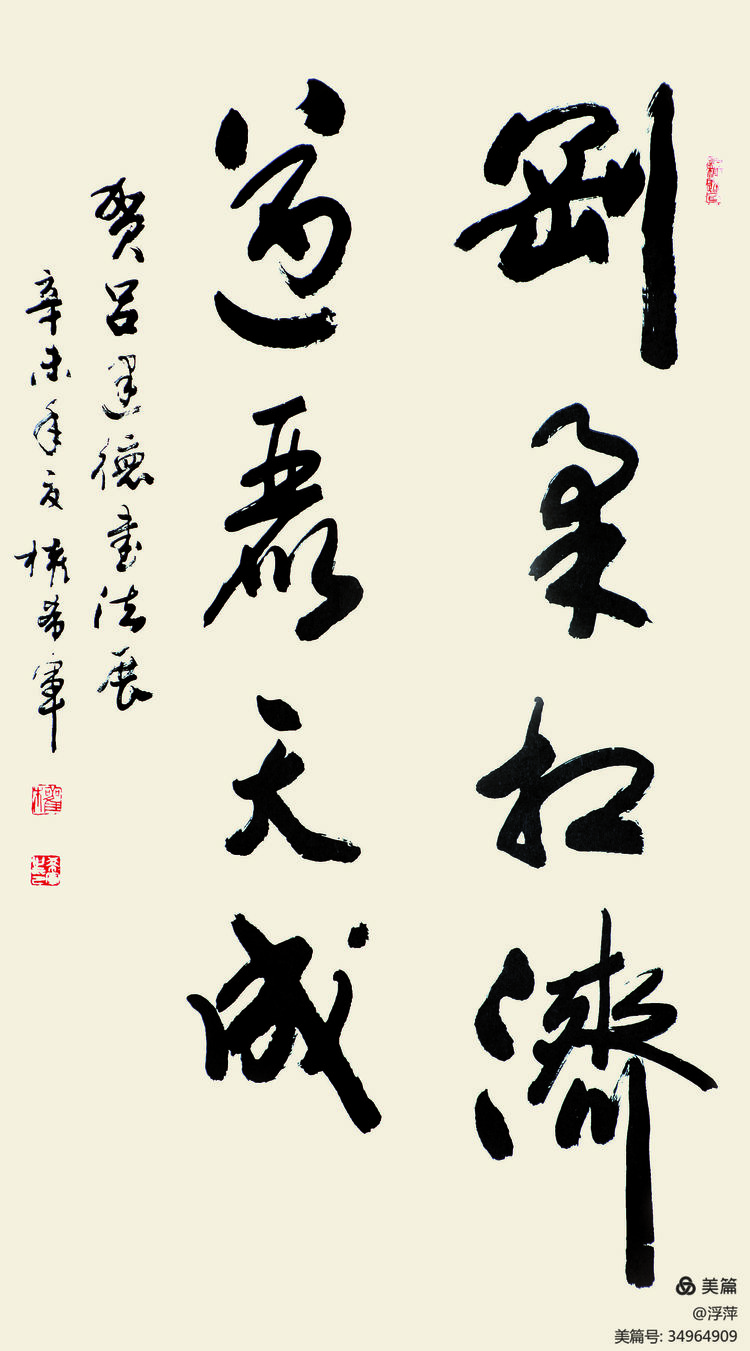 剛柔相濟
遒麗天成
賀呂建德書法展
辛未年夏權希軍
美篇
@浮萍
美篇号: 34964909